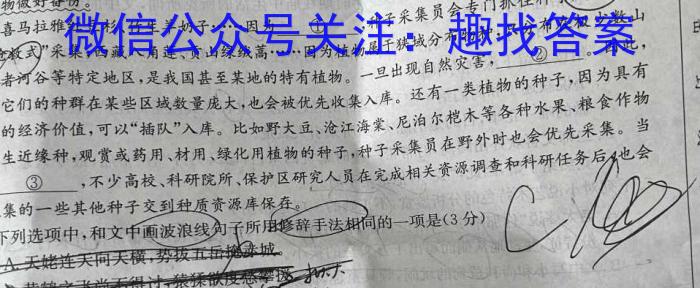 物做好备份。
微信公众号关注：趣找答案
喜马拉雅
种子采集员会专门抓住种子
者河谷等特定地区，是我国甚至某地的特有植物。一旦出现自然灾害，②
它们的种群在某些区域数量庞大，也会被优先收集入库。还有一类植物的种子，因为具有
的经济价值，可以“插队”入库。比如野大豆、沧江海棠、尼泊尔桤木等各种水果、粮食作物
生近缘种，观赏或药用、材用、绿化用植物的种子，种子采集员在野外时也会优先采集。当
③，不少高校、科研院所、保护区研究人员在完成相关资源调查和科研任务后，也会
集的一些其他种子交到种质资源库保存。
下列选项中，和文中画波浪线句子所用修辞手法相同的一项是(3分)
A.天姥连天向天横，势拔五岳掩赤城。
黄鹤之飞尚不得过，猿猱欲度愁攀援。